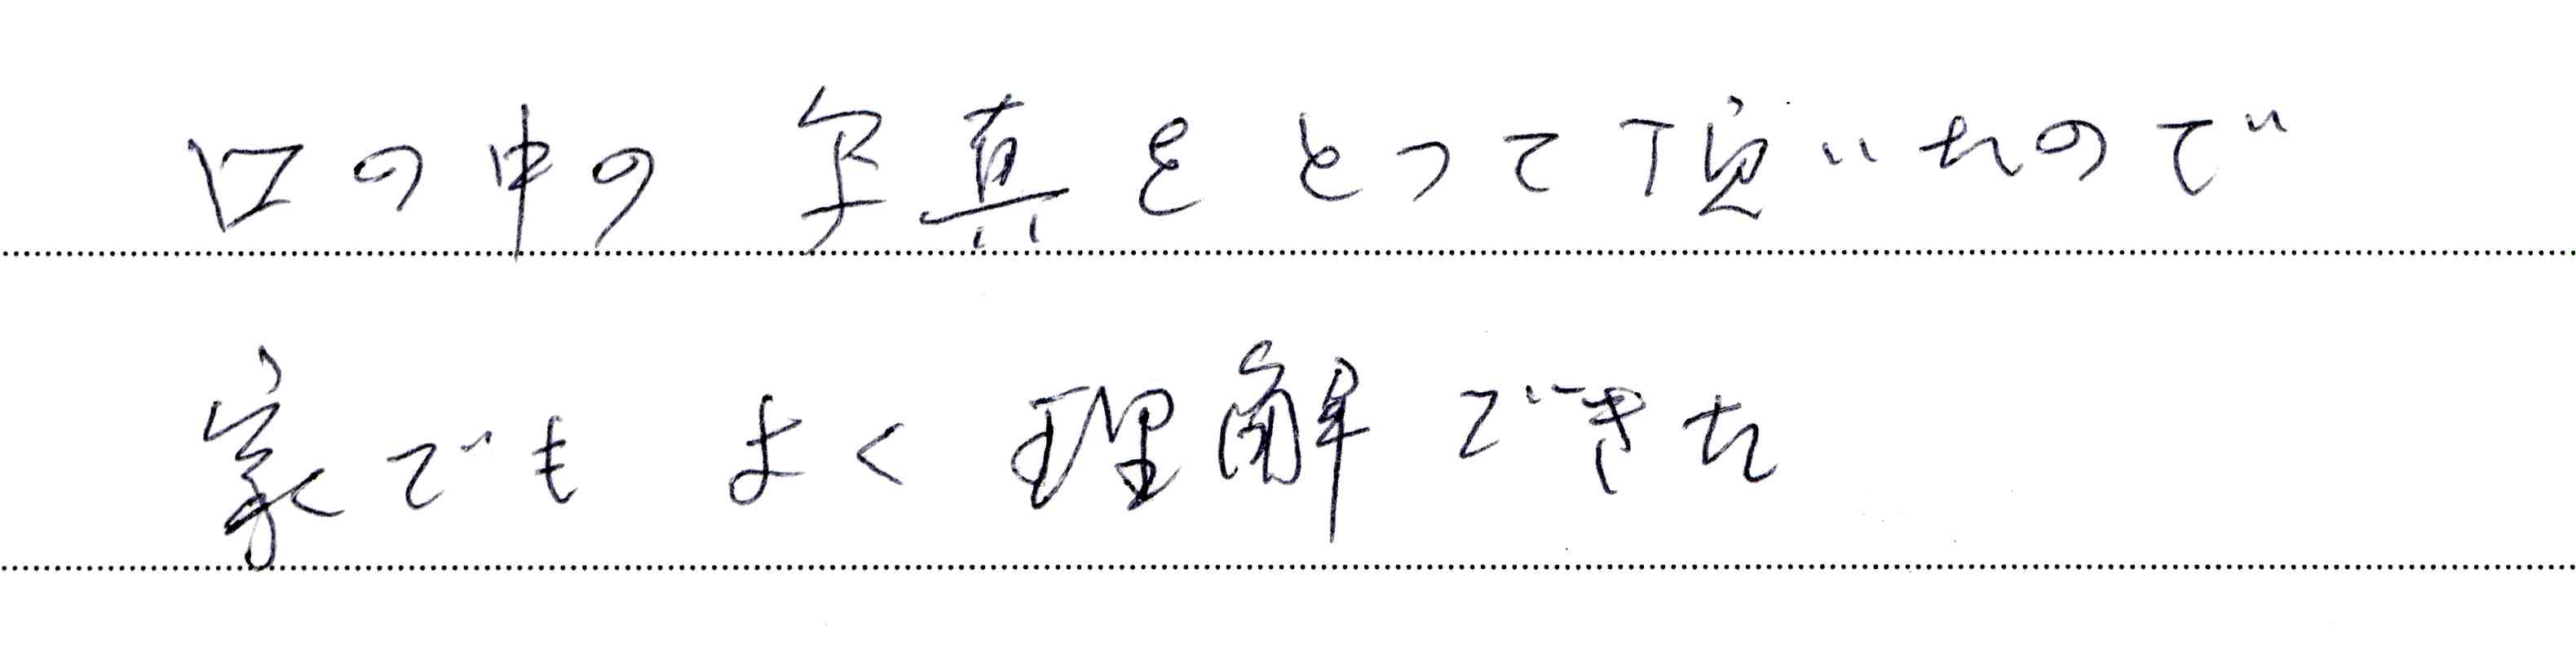 口の中の写真をとって頂いたので
家でもよく理解できた